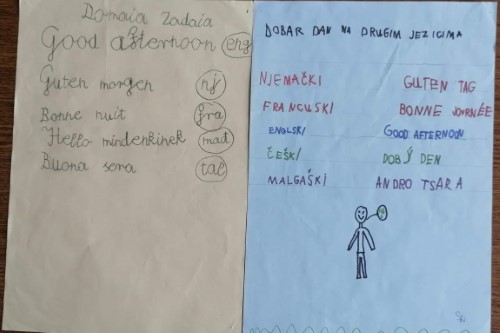 Domaia Zadaia
Good afternoon eng
Guten morgen nj
Bonne nuit fra
Hello mindenkinek mađ
Buona sera tal
DOBAR DAN NA DRUGIM JEZICIMA
NJEMAČKI GUTEN TAG
FRANCUSKI BONNE JOURNÉE
ENGLSKI GOOD AFTERNOON
ČEŠKI DOBÝ DEN
MALGAŠKI ANDRO TSARA